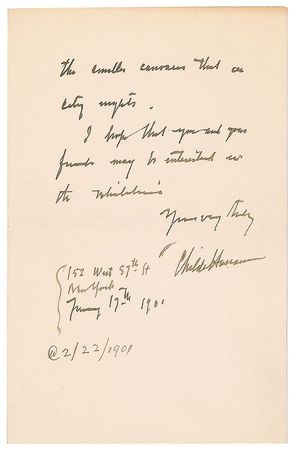 the smaller canvases that are
city nights.
I hope that you and your
friends may be interested in
the exhibition
Yours very truly
Childe Hassam
152 West 57th St
New York
17th 1901
@2/22/1901